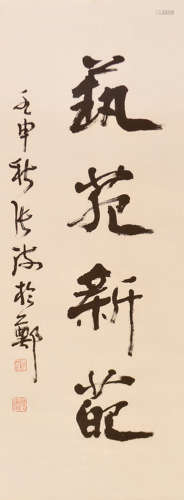 藝苑新葩
壬申秋张海於鄭